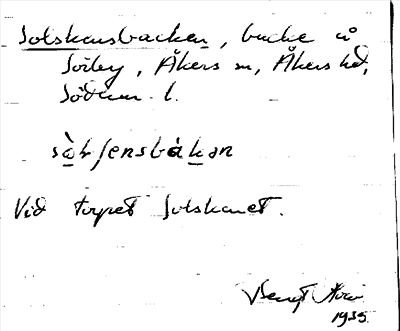 Solskensbacken, backe å
Sörby, Åkers sn, Åkers hd,
Söderm. l.
sòlʃensbàkan
Vid torpet Solskenet.
Bengt
1935